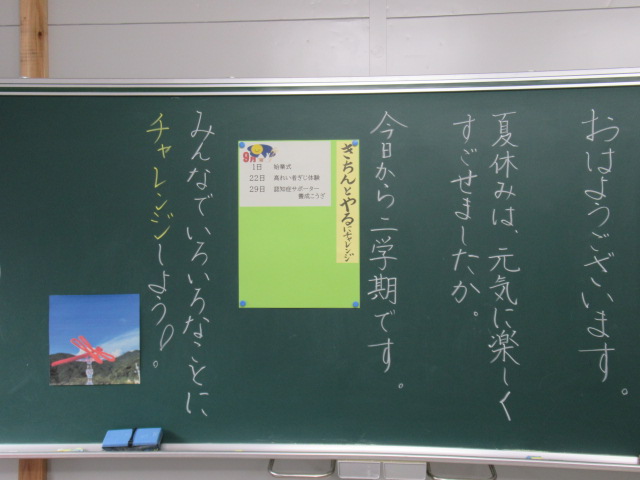 おはようございます。
夏休みは、元気に楽しく
すごせましたか。
今日から二学期です。
きちんとやるにチャレンジ
9月
1日 始業式
22日 高れい者ぎじ体験
29日 認知症サポーター
養成こうざ
みんなでいろいろなことに
チャレンジしよう!。